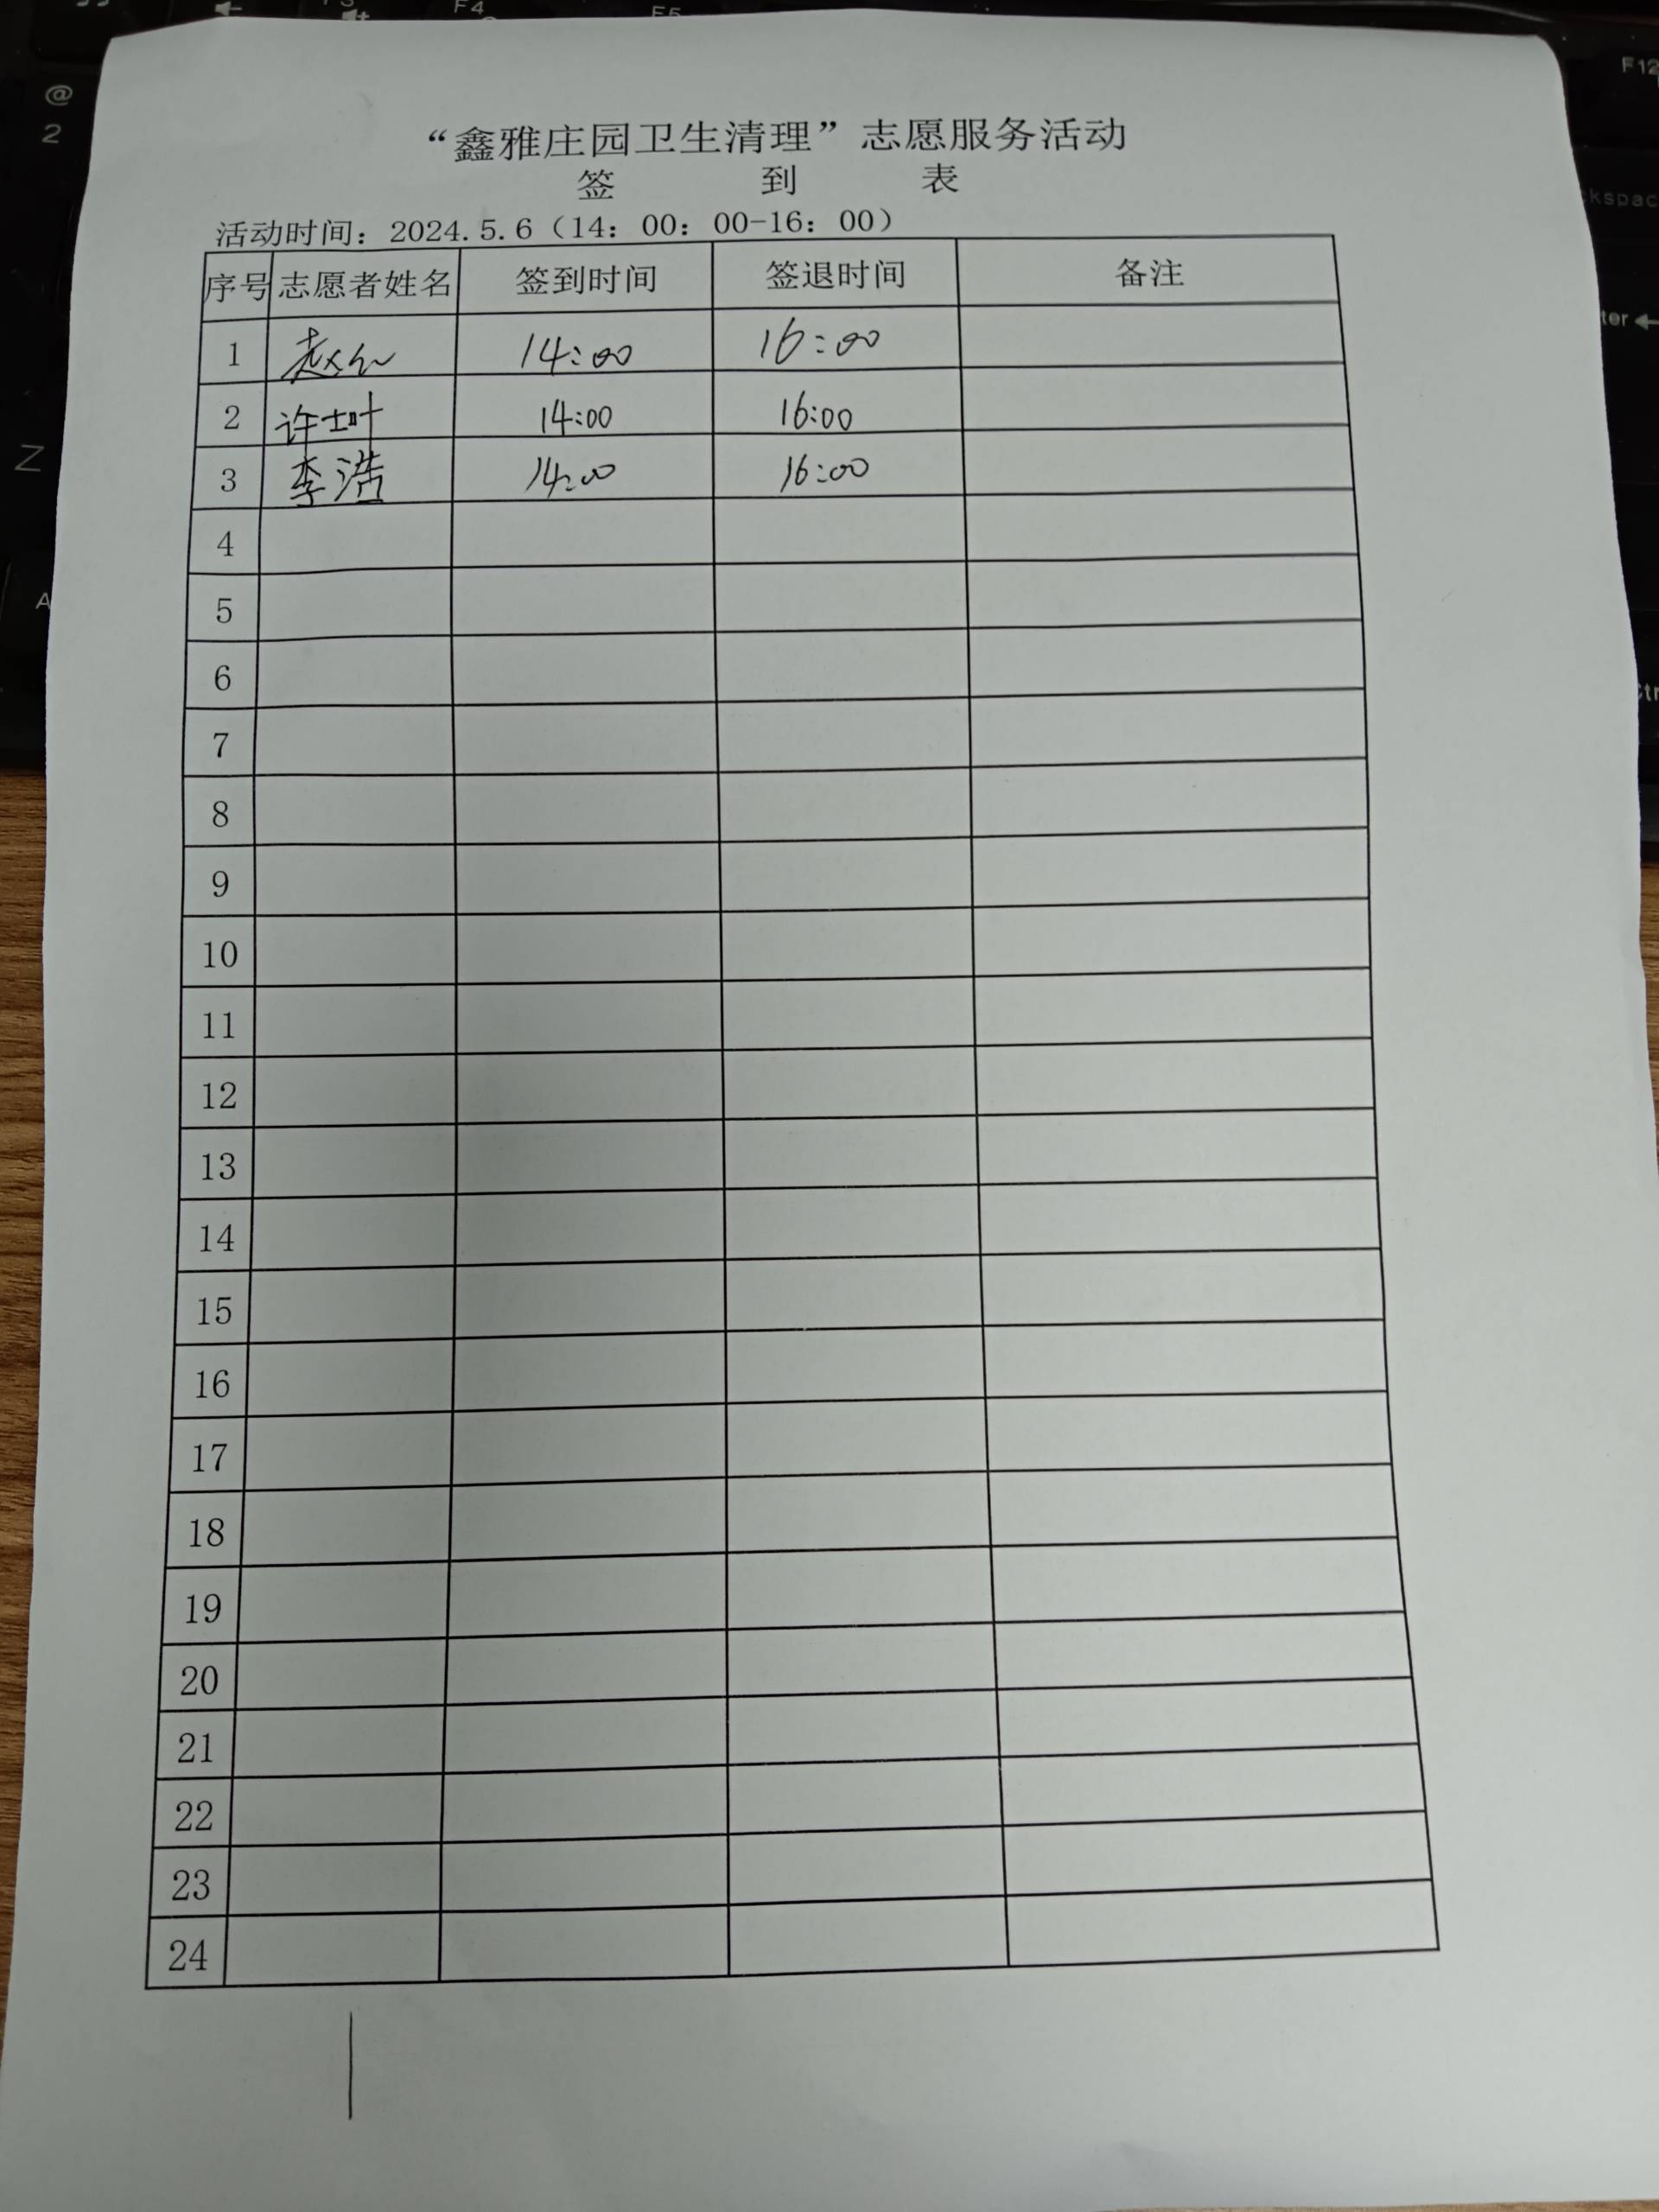 “鑫雅庄园卫生清理”志愿服务活动
签 到 表
活动时间：2024.5.6（14：00：00-16：00）
序号 志愿者姓名 签到时间 签退时间 备注
1 赵 14:00 16:00
2 许士叶 14:00 16:00
3 李浩 14:00 16:00
4
5
6
7
8
9
10
11
12
13
14
15
16
17
18
19
20
21
22
23
24
@
2
Z
A
F4
F5
F12